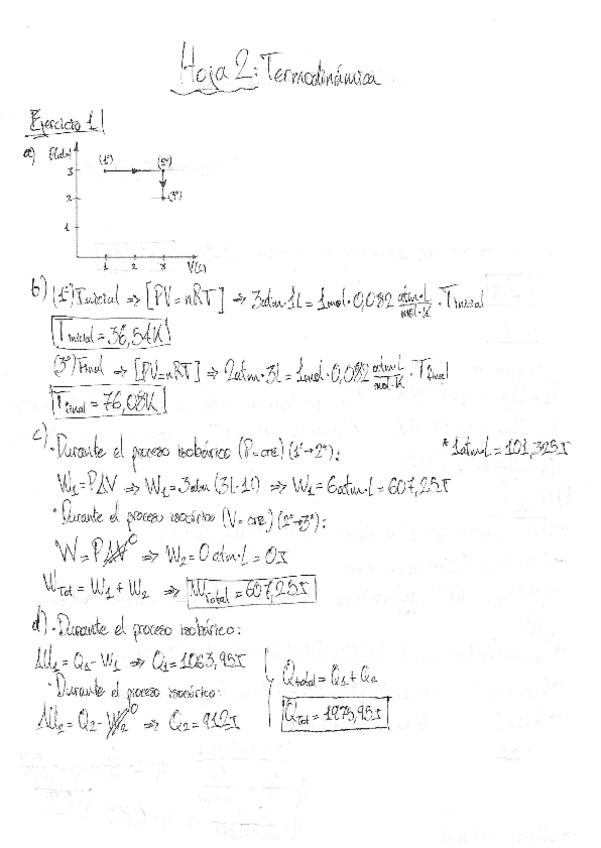 Hoja 2: Termodinámica
Ejercicio 1
a) P(atm)
(1º) (2º)
3
2 (3º)
1
1 2 3 V(L)
b) (1º) Tinicial => [PV=nRT] => 3atm·1L = 1mol·0,082 atm·L/mol·K · Tinicial
Tinicial = 36,54K
(3º) Tfinal => [PV=nRT] => 2atm·3L = 1mol·0,082 atm·L/mol·K · Tfinal
Tfinal = 76,08K
c) · Durante el proceso isobárico (P=cte) (1º→2º): * 1atm·L = 101,325J
W1 = PΔV => W1 = 3atm (3L-1L) => W1 = 6atm·L = 607,25J
· Durante el proceso isocórico (V=cte) (2º→3º):
W = PΔV 0 => W2 = 0 atm·L = 0J
WTot = W1 + W2 => WTotal = 607,25J
d) · Durante el proceso isobárico:
ΔU1 = Q1 - W1 => Q1 = 1063,95J
Qtotal = Q1 + Q2
· Durante el proceso isocórico:
ΔU2 = Q2 - W2 0 => Q2 = 912J
QTot = 1975,95J